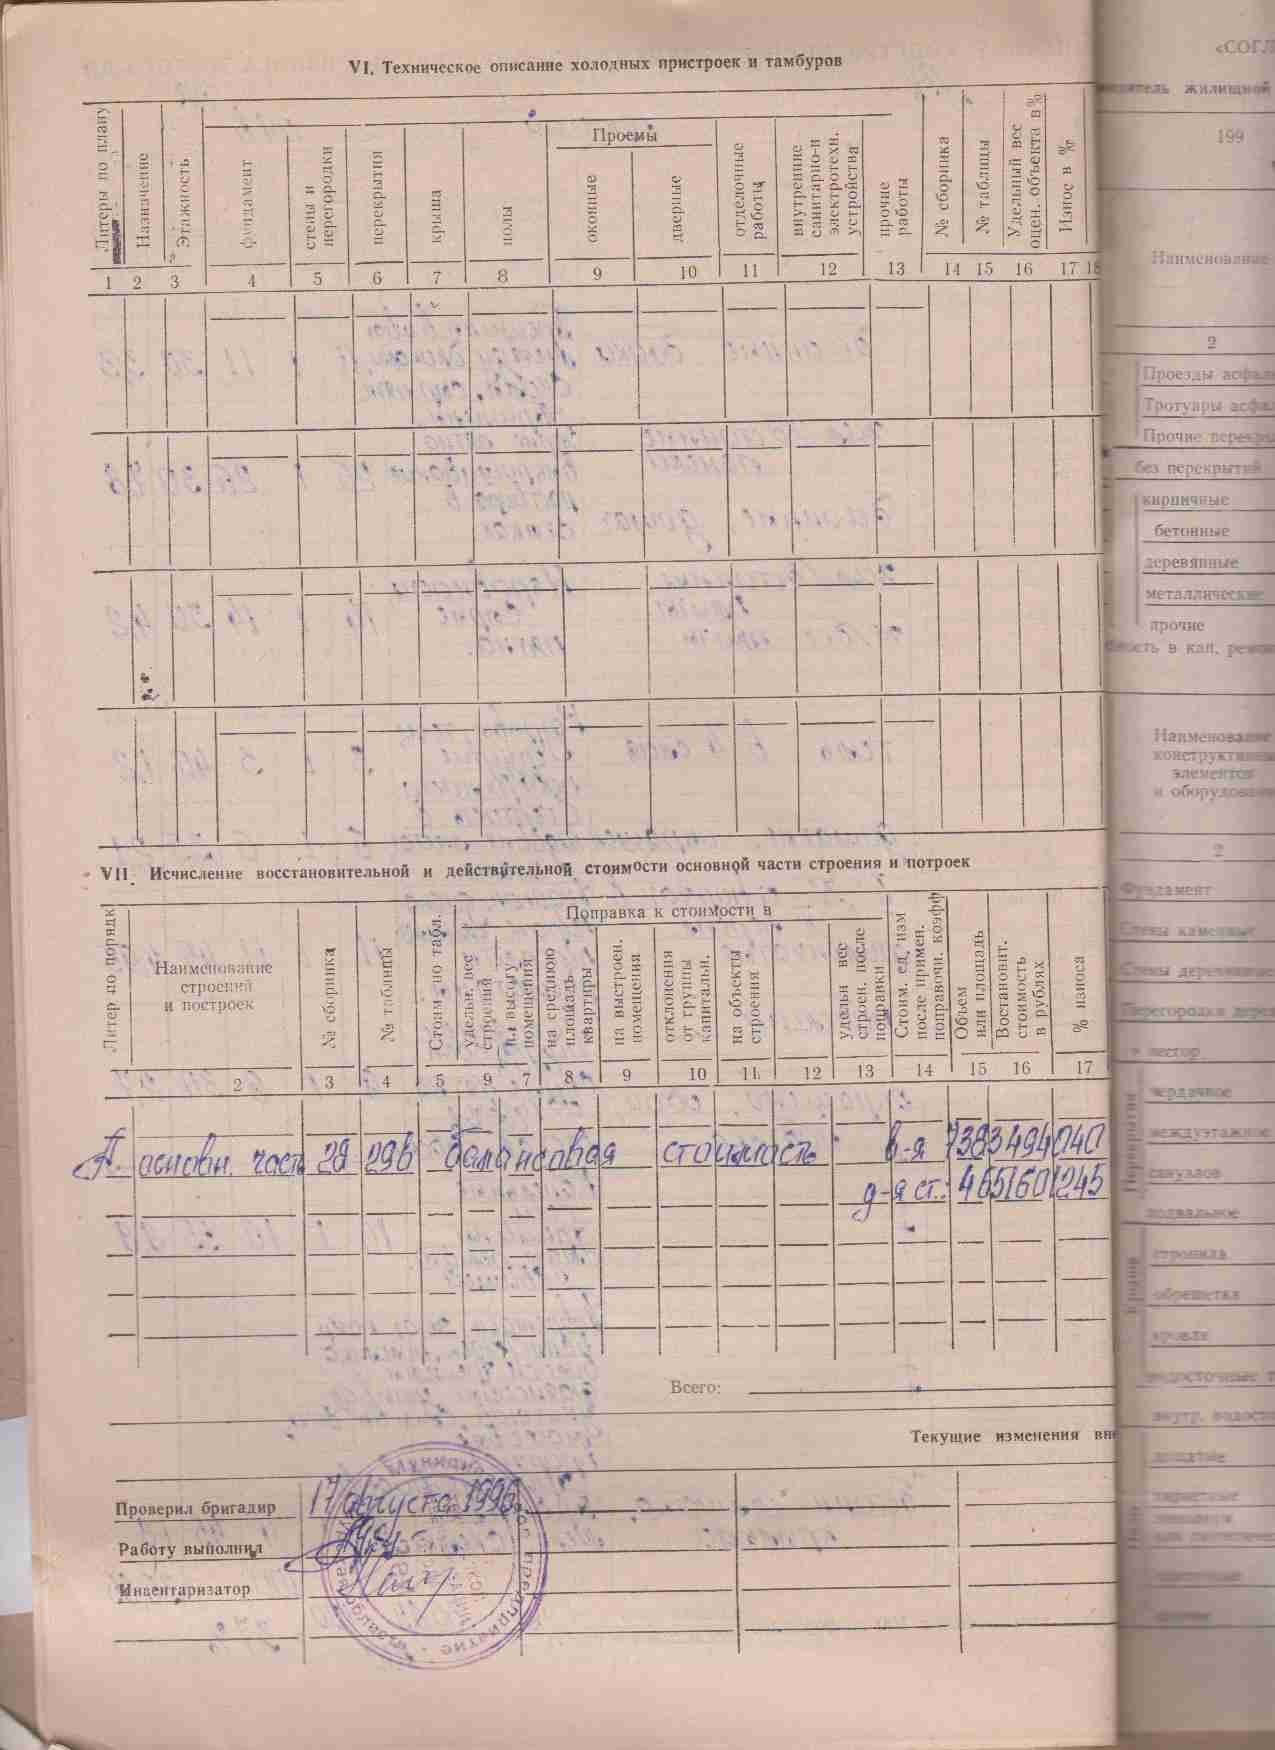 VI. Техническое описание холодных пристроек и тамбуров
Литеры по плану
Назначение
Этажность
фундамент
стены и перегородки
перекрытия
крыша
полы
Проемы
оконные
дверные
отделочные работы
внутренние санитарно-и электротехн. устройства
прочие работы
№ сборника
№ таблицы
Удельный вес оцен. объекта в %
Износ в %
1 2 3 4 5 6 7 8 9 10 11 12 13 14 15 16 17 18
VII. Исчисление восстановительной и действительной стоимости основной части строения и потроек
Литер по порядк
Наименование строений и построек
№ сборника
№ таблицы
Стоим. по табл.
Поправка к стоимости в
удельн. вес строений
на высоту помещения
на среднюю площадь квартиры
на выстроен. помещения
отклонения от группы капитальн.
на объекты строения
удельн вес строен. после поправки
Стоим. ед. изм после примен. поправочн. коэфф
Объем или площадь
Востановит. стоимость в рублях
% износа
1 2 3 4 5 9 7 8 9 10 11 12 13 14 15 16 17
А основн. часть 28 29в балансовая стоимость в-я 7383494040
д-я ст.: 4651601245
Всего:
Текущие изменения вне
Проверил бригадир 17 августа 1996
Работу выполнил
Инвентаризатор
«СОГЛ
жилищной
199
Наименование
2
Проезды асфаль
Тротуары асфал
Прочие перекры
без перекрытий
кирпичные
бетонные
деревянные
металлические
прочие
ность в кап. ремон
Наименование
конструктивны
элементов
и оборудовани
2
Фундамент
Стены каменные
Стены деревянные
Перегородки дерев
чердачное
междуэтажное
санузлов
подвальное
стропила
обрешетка
кровля
водосточные т
внутр. водосто